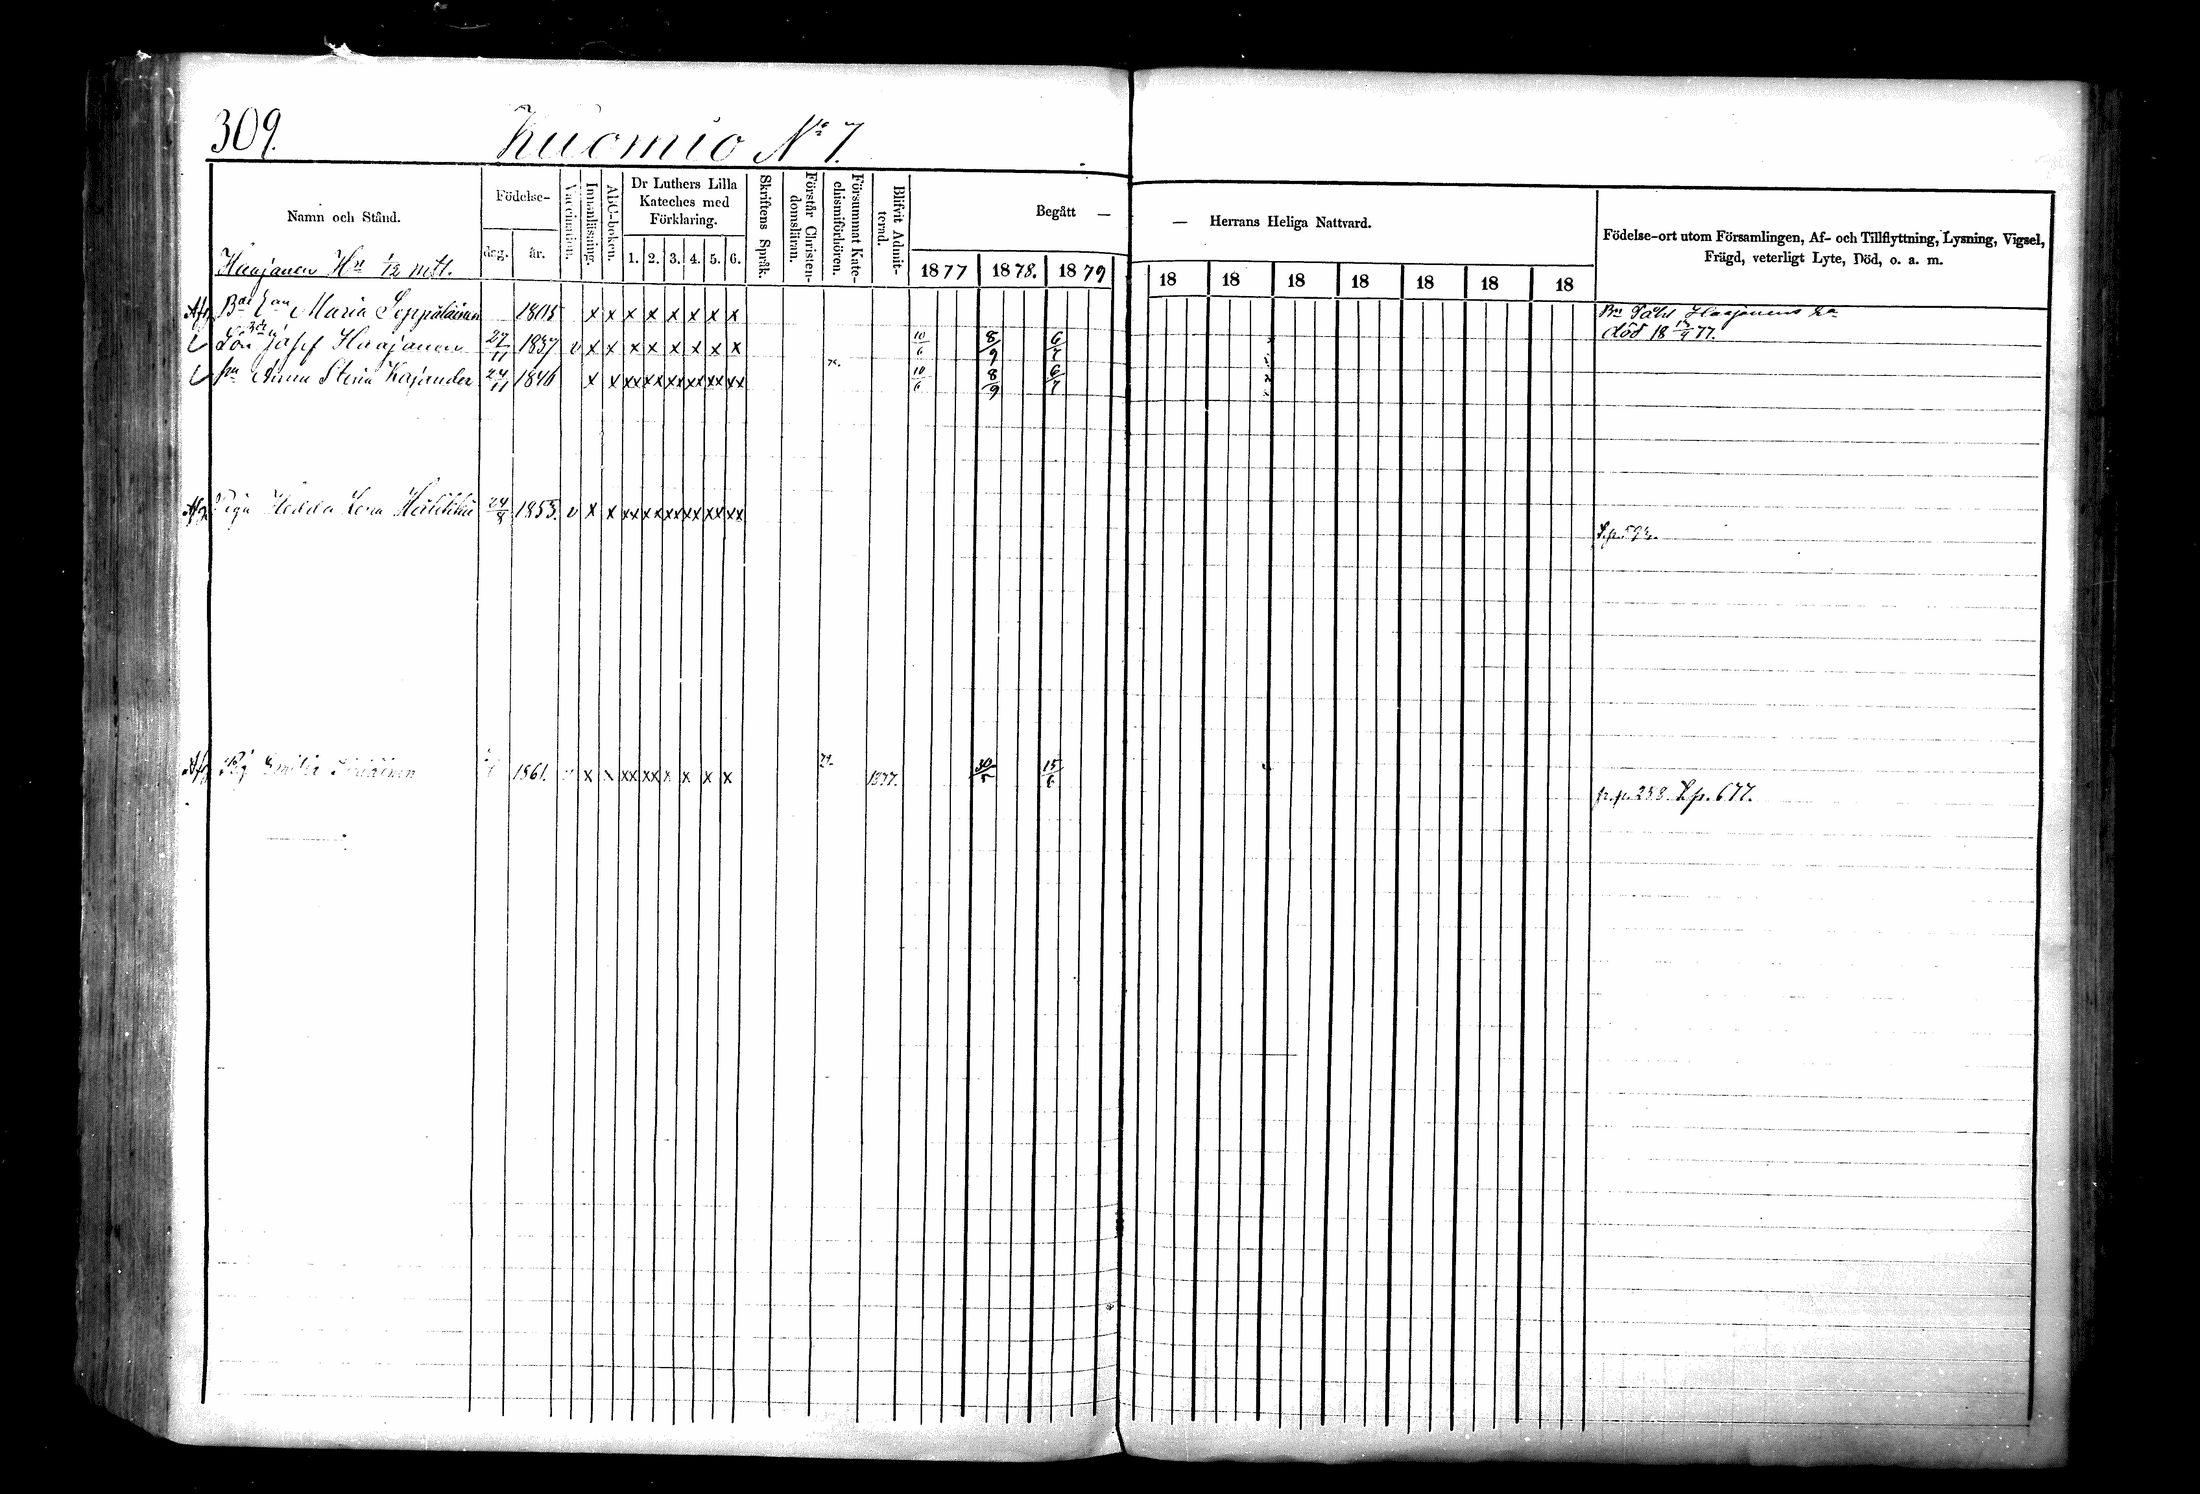 309.
Kuomio No 7.
Namn och Stånd.
Födelse-
dag.
år.
Vaccination.
Innanläsning.
ABC-boken.
Dr Luthers Lilla Kateches med Förklaring.
1. 2. 3. 4. 5. 6.
Skriftens Språk.
Förstår Christendomsläran.
Försummat Katechismiförhören.
Blifvit Admitterad.
Begått —
— Herrans Heliga Nattvard.
1877 1878. 1879
18 18 18 18 18 18 18
Födelse-ort utom Församlingen, Af- och Tillflyttning, Lysning, Vigsel,
Frägd, veterligt Lyte, Död, o. a. m.
Haajanen Hn 1/12 mtl.
Maria Seppäläinen 1805 x x x x x x x x
död 18 77.
Josef Haajanen 27/11 1837 v x x x x x x x x 10/6 8/9 6/7
Anna Stina Kajander 24/11 1846 x x xx xx xx xx xx xx 10/6 8/9 6/7
Piga Hedda Lena 24/8 1853. v x x xx xx xx xx xx xx
Pig Emilia 1861. x x xx xx x x x x 1877. 30/5 15/6
fr. p. 258 p. 677.